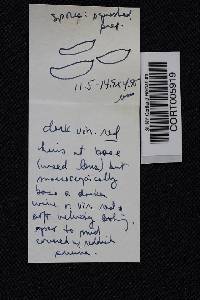 Spores: squashed
prep.
11.5-14.5 x 4.5
dark vin. red
hairs at base
(used lens) but
macroscopically
base a darker
wine or vin. red &
soft velvety looking
apex to mid
covered w. reddish
CORT005919